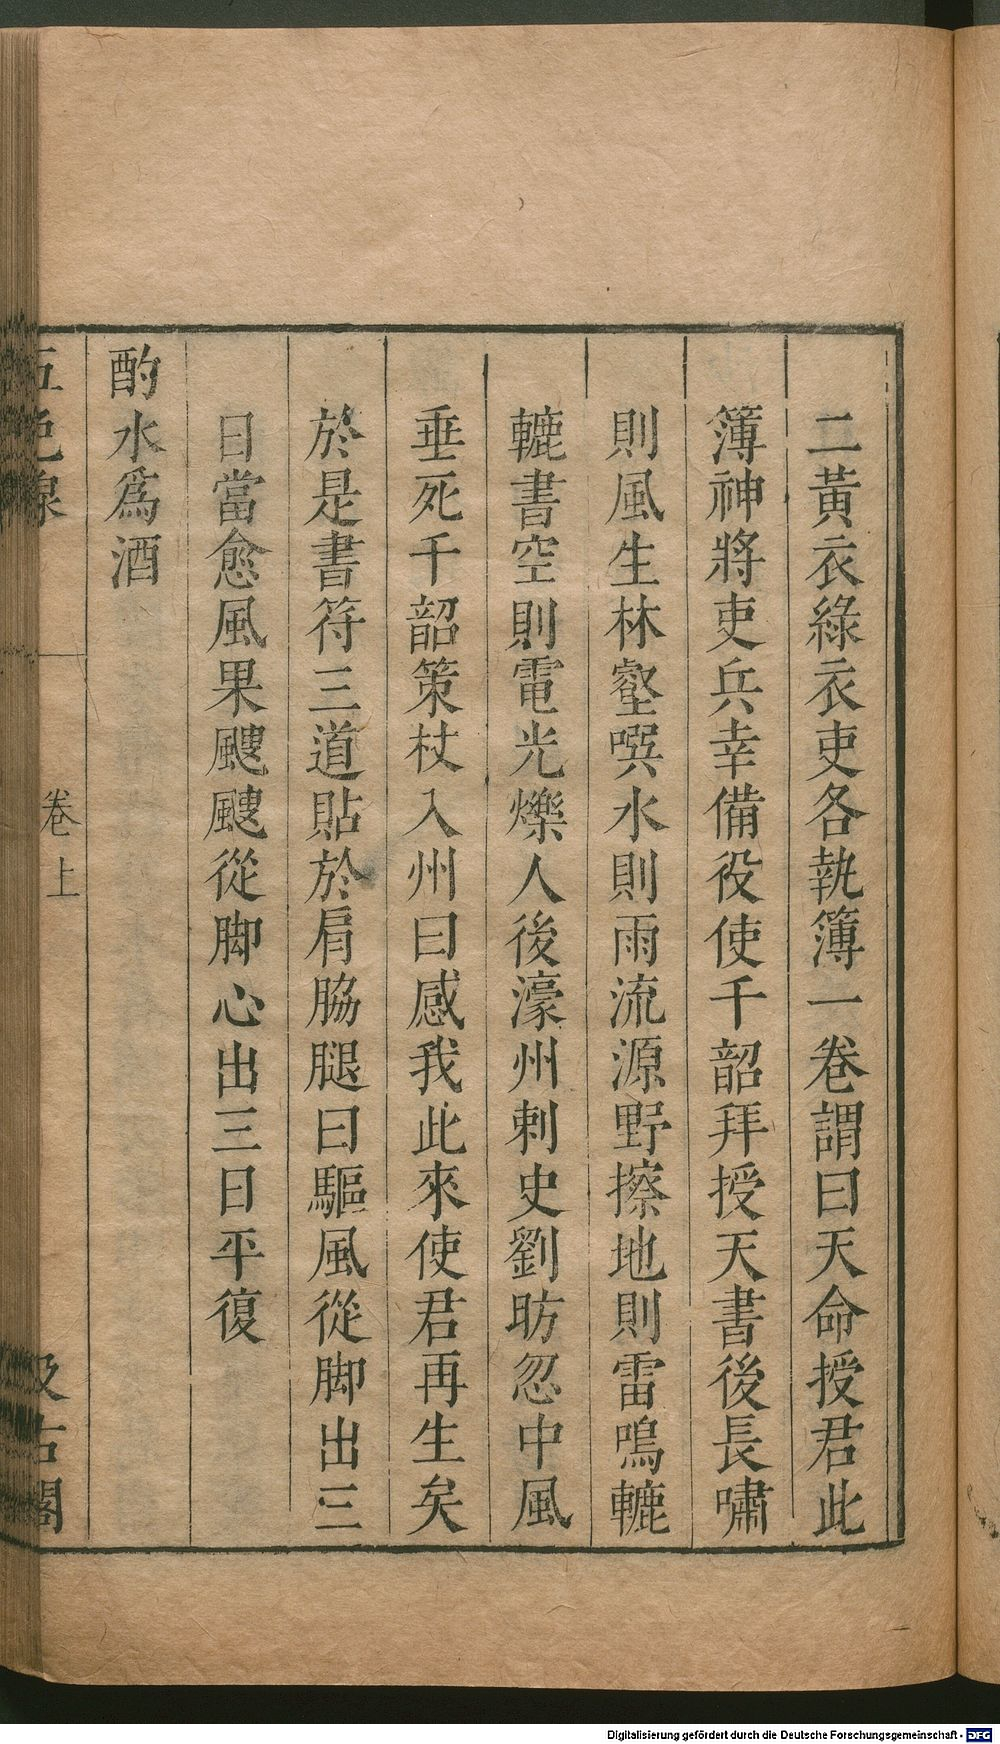 二黃衣綠衣吏各執簿一卷謂曰天命授君此
簿神將吏兵幸備役使千韶拜授天書後長嘯
則風生林壑噀水則雨流源野擦地則雷鳴轆
轆書空則電光爍人後濠州刺史劉昉忽中風
垂死千韶策杖入州曰感我此來使君再生矣
於是書符三道貼於肩脇腿曰驅風從脚出三
日當愈風果颼颼從脚心出三日平復
酌水爲酒
五色線
卷上
汲古閣
Digitalisierung gefördert durch die Deutsche Forschungsgemeinschaft - DFG